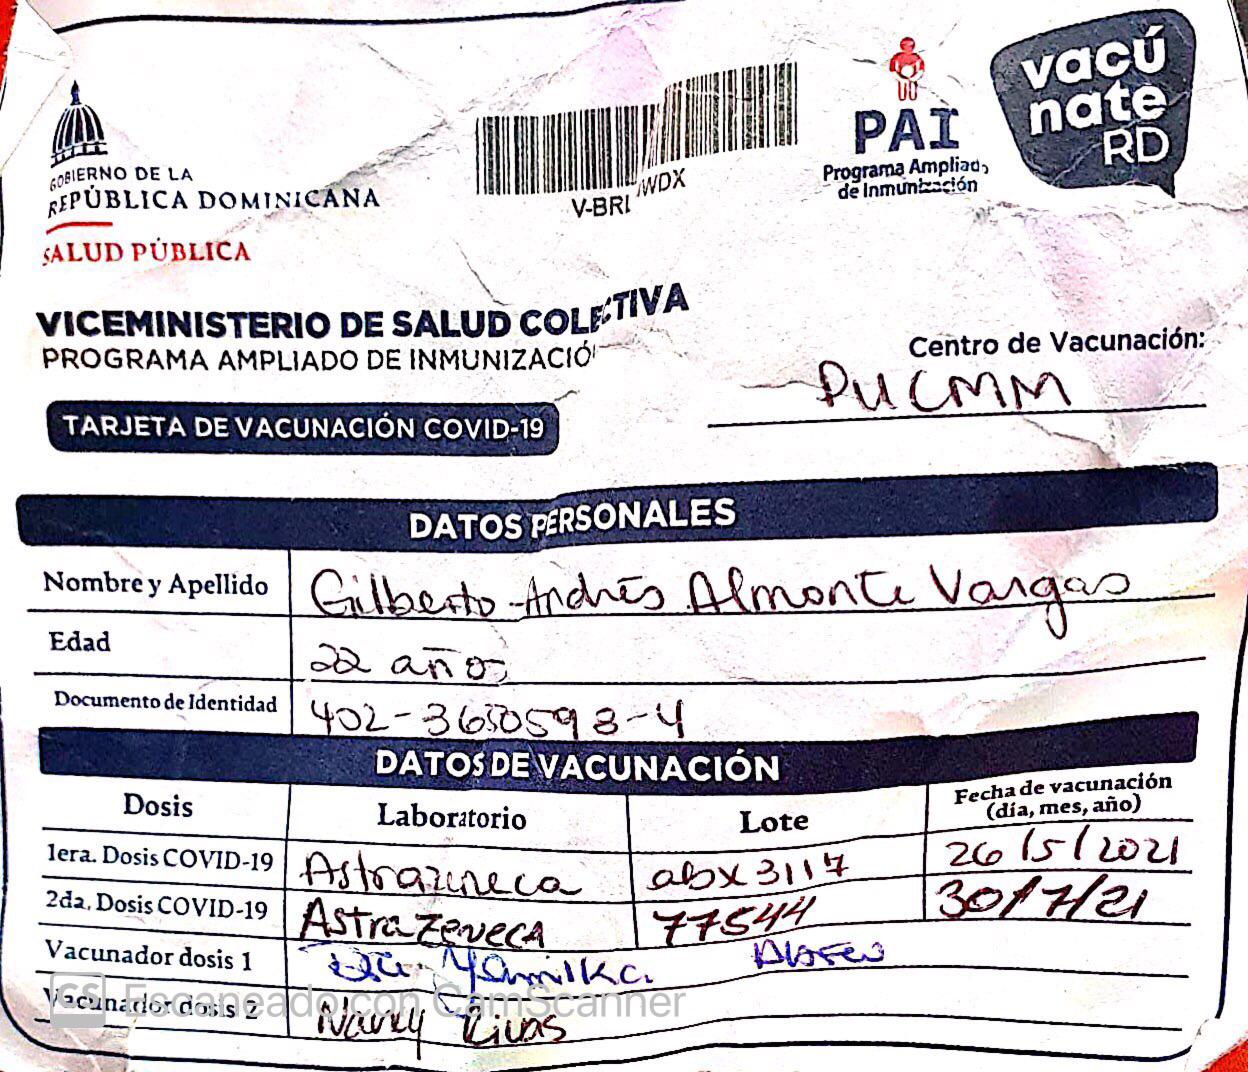 GOBIERNO DE LA
REPÚBLICA DOMINICANA
SALUD PÚBLICA
V-BRI WDX
PAI
Programa Ampliado
de Inmunización
vacú
nate
RD
VICEMINISTERIO DE SALUD COLECTIVA
PROGRAMA AMPLIADO DE INMUNIZACIÓ
Centro de Vacunación:
PUCMM
TARJETA DE VACUNACIÓN COVID-19
DATOS PERSONALES
Nombre y Apellido Gilberto Andrés Almonte Vargas
Edad 22 años
Documento de Identidad
DATOS DE VACUNACIÓN
Dosis Laboratorio Lote Fecha de vacunación
(día, mes, año)
1era. Dosis COVID-19 Astrazeneca abx3117 26/5/2021
2da. Dosis COVID-19 AstraZeneca 77544 30/7/21
Vacunador dosis 1 Yamilka
Vacunador dosis 2 Nancy Rivas
CS Escaneado con CamScanner